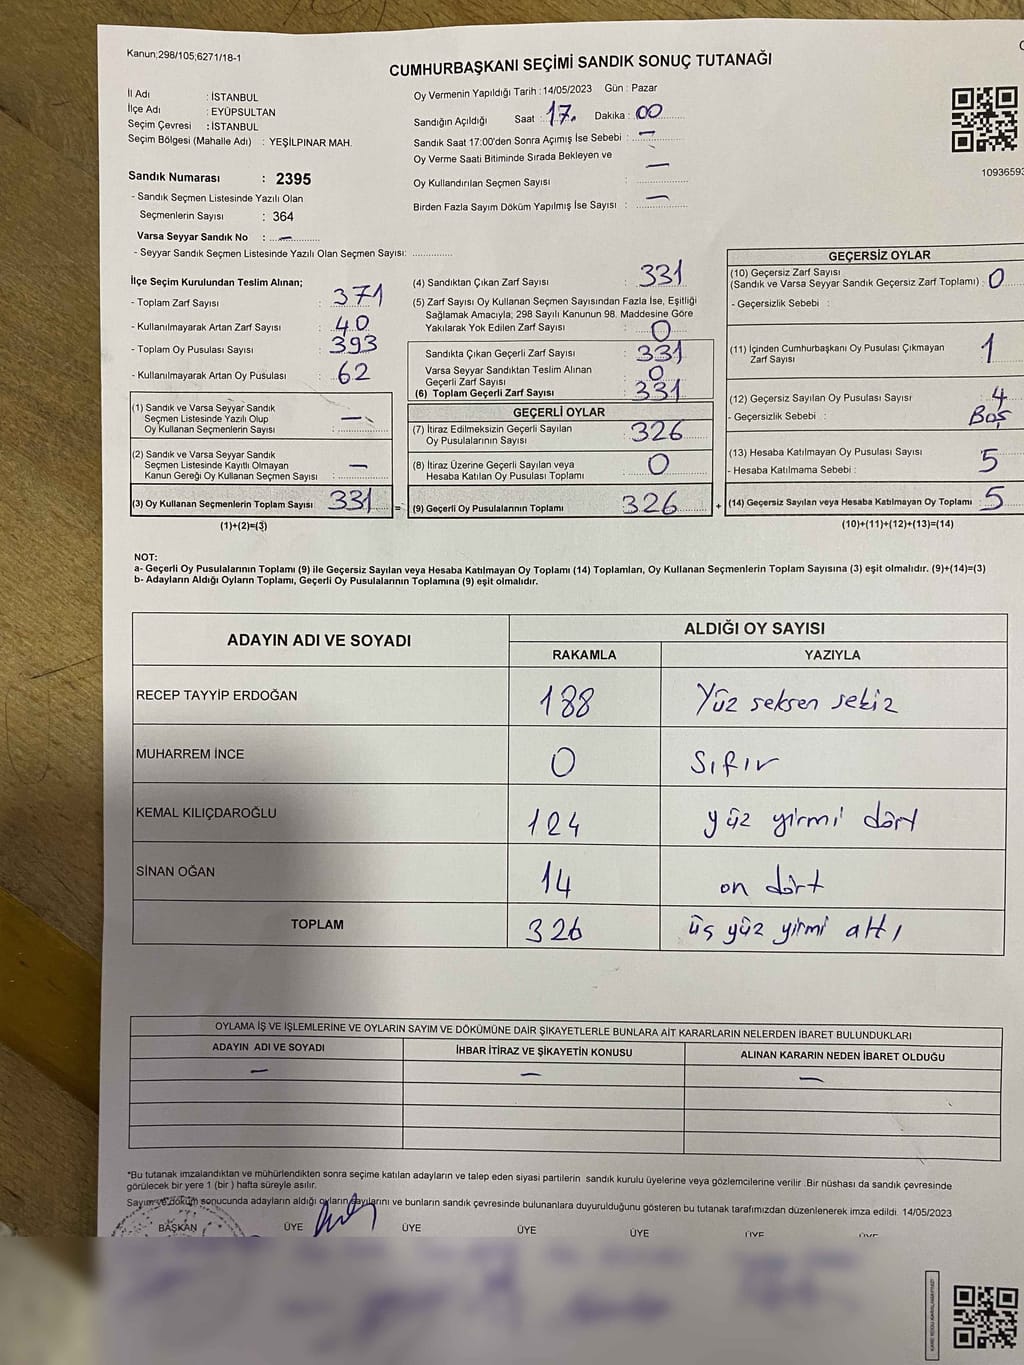 Kanun;298/105;6271/18-1
CUMHURBAŞKANI SEÇİMİ SANDIK SONUÇ TUTANAĞI
İl Adı : İSTANBUL
İlçe Adı : EYÜPSULTAN
Seçim Çevresi : İSTANBUL
Seçim Bölgesi (Mahalle Adı) : YEŞİLPINAR MAH.
Sandık Numarası : 2395
- Sandık Seçmen Listesinde Yazılı Olan
Seçmenlerin Sayısı : 364
Varsa Seyyar Sandık No : –
- Seyyar Sandık Seçmen Listesinde Yazılı Olan Seçmen Sayısı: ............
Oy Vermenin Yapıldığı Tarih : 14/05/2023 Gün : Pazar
Sandığın Açıldığı Saat : 17. Dakika : 00
Sandık Saat 17:00'den Sonra Açımış İse Sebebi : –
Oy Verme Saati Bitiminde Sırada Bekleyen ve
Oy Kullandırılan Seçmen Sayısı : –
Birden Fazla Sayım Döküm Yapılmış İse Sayısı : –
1093659
İlçe Seçim Kurulundan Teslim Alınan;
- Toplam Zarf Sayısı : 371
- Kullanılmayarak Artan Zarf Sayısı : 40
- Toplam Oy Pusulası Sayısı : 393
- Kullanılmayarak Artan Oy Pusulası : 62
(1) Sandık ve Varsa Seyyar Sandık
Seçmen Listesinde Yazılı Olup
Oy Kullanan Seçmenlerin Sayısı : –
(2) Sandık ve Varsa Seyyar Sandık
Seçmen Listesinde Kayıtlı Olmayan
Kanun Gereği Oy Kullanan Seçmen Sayısı : –
(3) Oy Kullanan Seçmenlerin Toplam Sayısı 331 =
(1)+(2)=(3)
(4) Sandıktan Çıkan Zarf Sayısı 331
(5) Zarf Sayısı Oy Kullanan Seçmen Sayısından Fazla İse, Eşitliği
Sağlamak Amacıyla; 298 Sayılı Kanunun 98. Maddesine Göre
Yakılarak Yok Edilen Zarf Sayısı : 0
Sandıkta Çıkan Geçerli Zarf Sayısı : 331
Varsa Seyyar Sandıktan Teslim Alınan
Geçerli Zarf Sayısı : 0
(6) Toplam Geçerli Zarf Sayısı : 331
GEÇERLİ OYLAR
(7) İtiraz Edilmeksizin Geçerli Sayılan
Oy Pusulalarının Sayısı : 326
(8) İtiraz Üzerine Geçerli Sayılan veya
Hesaba Katılan Oy Pusulası Toplamı : 0
(9) Geçerli Oy Pusulalarının Toplamı 326 +
GEÇERSİZ OYLAR
(10) Geçersiz Zarf Sayısı
(Sandık ve Varsa Seyyar Sandık Geçersiz Zarf Toplamı) : 0
- Geçersizlik Sebebi :
(11) İçinden Cumhurbaşkanı Oy Pusulası Çıkmayan
Zarf Sayısı 1
(12) Geçersiz Sayılan Oy Pusulası Sayısı 4
- Geçersizlik Sebebi : Boş
(13) Hesaba Katılmayan Oy Pusulası Sayısı 5
- Hesaba Katılmama Sebebi :
(14) Geçersiz Sayılan veya Hesaba Katılmayan Oy Toplamı 5
(10)+(11)+(12)+(13)=(14)
NOT:
a- Geçerli Oy Pusulalarının Toplamı (9) ile Geçersiz Sayılan veya Hesaba Katılmayan Oy Toplamı (14) Toplamları, Oy Kullanan Seçmenlerin Toplam Sayısına (3) eşit olmalıdır. (9)+(14)=(3)
b- Adayların Aldığı Oyların Toplamı, Geçerli Oy Pusulalarının Toplamına (9) eşit olmalıdır.
ADAYIN ADI VE SOYADI ALDIĞI OY SAYISI
RAKAMLA YAZIYLA
RECEP TAYYİP ERDOĞAN 188 Yüz seksen sekiz
MUHARREM İNCE 0 Sıfır
KEMAL KILIÇDAROĞLU 124 yüz yirmi dört
SİNAN OĞAN 14 on dört
TOPLAM 326 üç yüz yirmi altı
OYLAMA İŞ VE İŞLEMLERİNE VE OYLARIN SAYIM VE DÖKÜMÜNE DAİR ŞİKAYETLERLE BUNLARA AİT KARARLARIN NELERDEN İBARET BULUNDUKLARI
ADAYIN ADI VE SOYADI İHBAR İTİRAZ VE ŞİKAYETİN KONUSU ALINAN KARARIN NEDEN İBARET OLDUĞU
– – –
*Bu tutanak imzalandıktan ve mühürlendikten sonra seçime katılan adayların ve talep eden siyasi partilerin sandık kurulu üyelerine veya gözlemcilerine verilir .Bir nüshası da sandık çevresinde
görülecek bir yere 1 (bir ) hafta süreyle asılır.
Sayım ve döküm sonucunda adayların aldığı oyların sayılarını ve bunların sandık çevresinde bulunanlara duyurulduğunu gösteren bu tutanak tarafımızdan düzenlenerek imza edildi. 14/05/2023
BAŞKAN ÜYE ÜYE ÜYE ÜYE ÜYE ÜYE